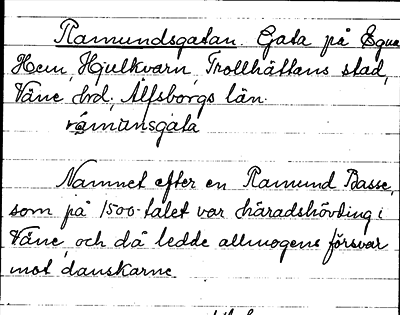 Ramundsgatan. Gata på Egna
Hem, Hjulkvarn, Trollhättans stad,
Väne hrd. Älfsborgs län.
råmunsgata
Namnet efter en Ramund Basse,
som på 1500-talet var häradshövding i
Väne, och då ledde allmogens försvar
mot danskarne.